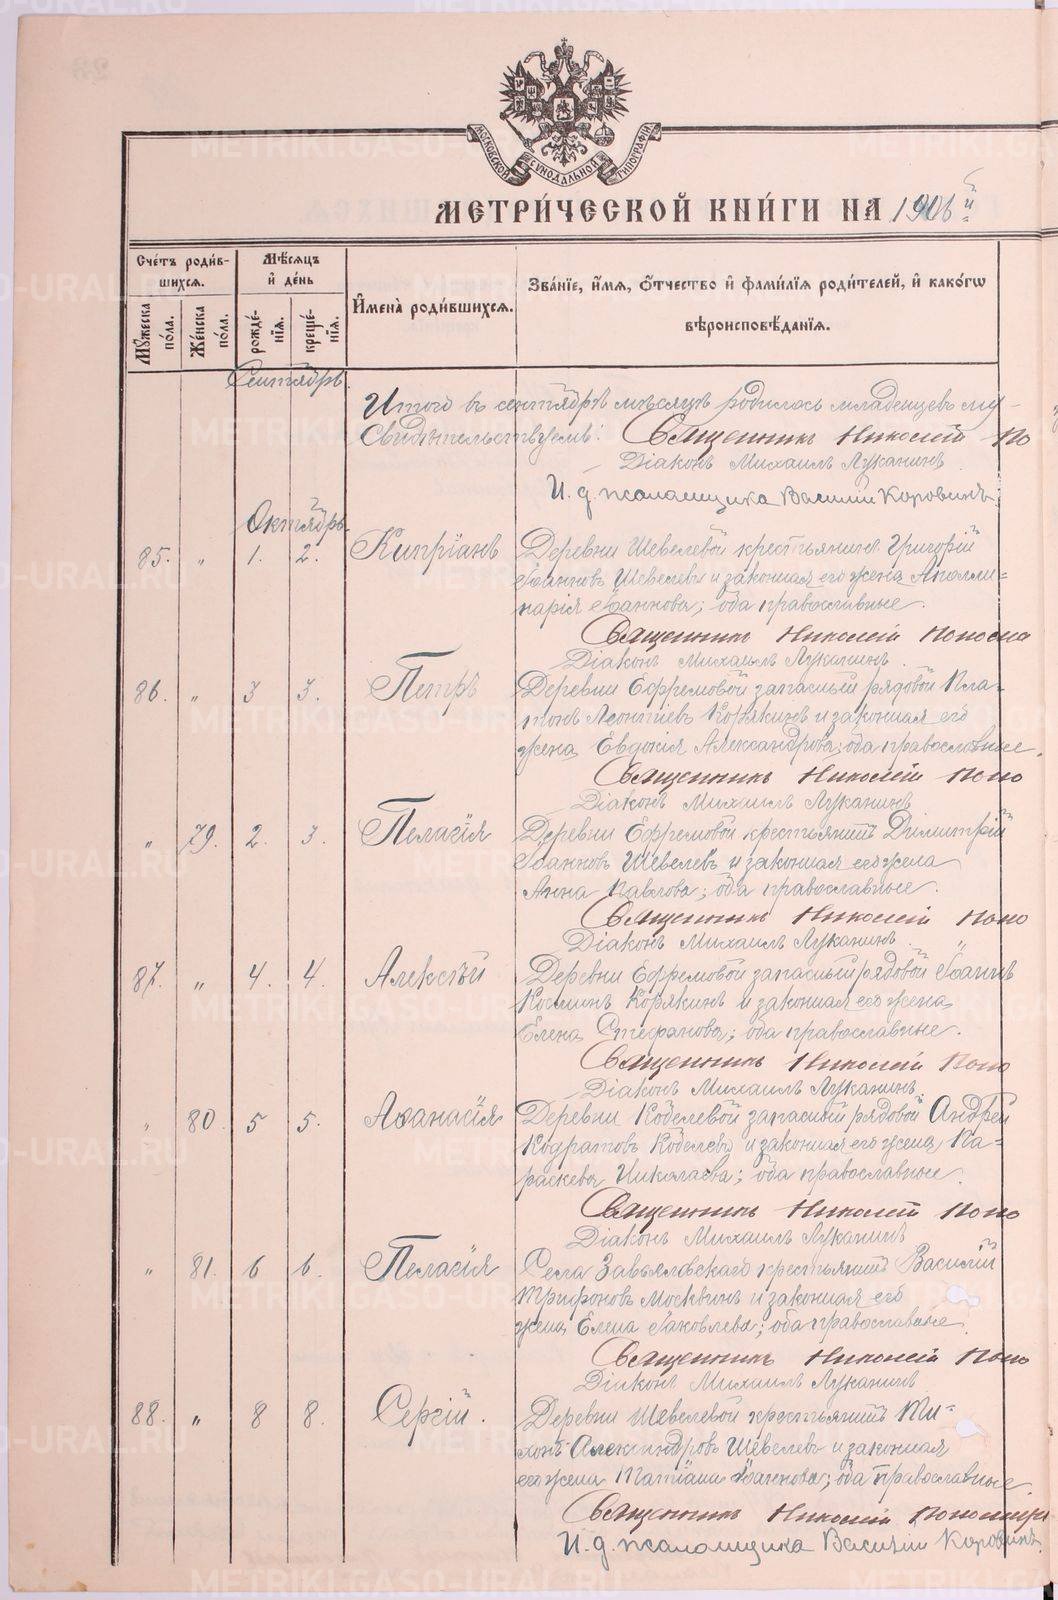 МОСКОВСКОЙ СУНОДАЛЬНОЙ ТИПОГРАФІИ
МЕТРИ́ЧЕСКОЙ КНИ́ГИ НА 1906й
Сче́тъ роди́вшихся.
Мꙋ́жеска по́ла.
Же́нска по́ла.
Мѣ́сяцъ и҆ де́нь
рожде́нїя.
креще́нїя.
И҆мена̀ роди́вшихся.
Зва́нїе, и҆́мя, ѻ҆́тчество и҆ фами́лїя роди́телей, и҆ како́гѡ
вѣроисповѣ́данїя.
Сентябрь.
Итого въ сентябрѣ мѣсяцѣ родилось младенцевъ му-
Свидѣтельствуемъ: Священникъ Николай По
Діаконъ Михаилъ Луканинъ.
И. д. псаломщика Василій Коровинъ.
Октябрь.
85. " 1. 2. Кипріанъ Деревни Шевелевой крестьянинъ Григорій
Іоанновъ Шевелевъ и законная его жена Аполли-
нарія Іоаннова; оба православные.
Священникъ Николай Понома
Діаконъ Михаилъ Луканинъ.
86. " 3 3. Петръ Деревни Ефремовой запасный рядовой Пла-
тонъ Леонтіевъ Корякинъ и законная его
жена Евдокія Александрова; оба православные.
Священникъ Николай Поно
Діаконъ Михаилъ Луканинъ
" 79. 2. 3. Пелагія Деревни Ефремовой крестьянинъ Димитрій
Іоанновъ Шевелевъ и законная его жена
Анна Павлова; оба православные.
Священникъ Николай Поно
Діаконъ Михаилъ Луканинъ.
87. " 4. 4. Алексѣй Деревни Ефремовой запасный рядовой Іоаннъ
Косминъ Корякинъ и законная его жена
Елена Стефанова; оба православные.
Священникъ Николай Поно
Діаконъ Михаилъ Луканинъ.
" 80. 5 5. Аѳанасія Деревни Кобелевой запасный рядовой Андрей
Кодратовъ Кобелевъ и законная его жена Па-
раскева Николаева; оба православные.
Священникъ Николай Поно
Діаконъ Михаилъ Луканинъ
" 81. 6 6. Пелагія Села Завьяловскаго крестьянинъ Василій
Трифоновъ Москвинъ и законная его
жена Елена Іаковлева; оба православные.
Священникъ Николай Поно
Діаконъ Михаилъ Луканинъ
88. " 8 8. Сергій. Деревни Шевелевой крестьянинъ Ти-
хонъ Александровъ Шевелевъ и законная
его жена Татіана Іоаннова; оба православные.
Священникъ Николай Пономар
И. д. псаломщика Василій Коровинъ.
METRIKI.GASO-URAL.RU